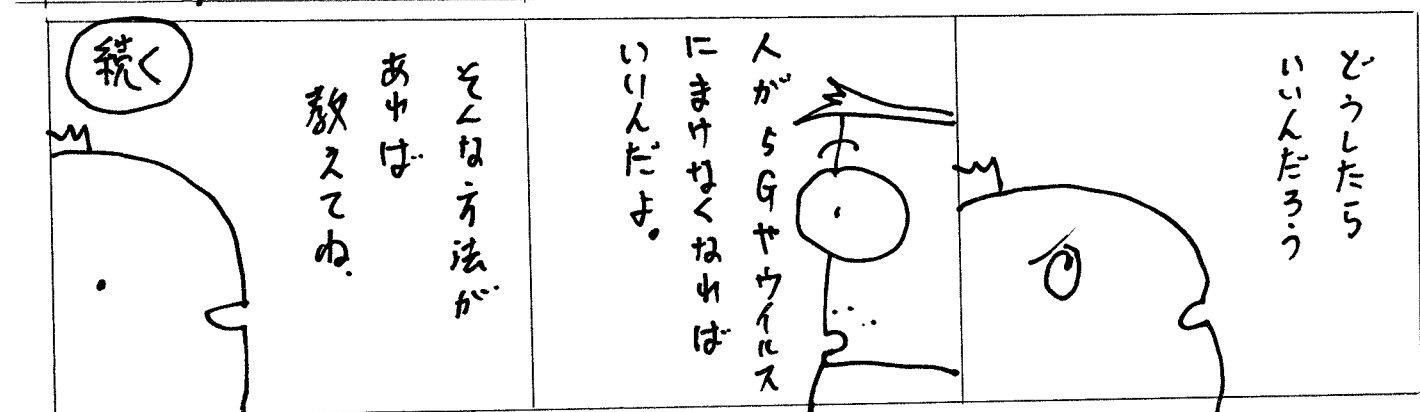 どうしたら
いいんだろう
人が5Gやウイルス
にまけなくなれば
いいんだよ。
そんな方法が
あれば
教えてね、
続く